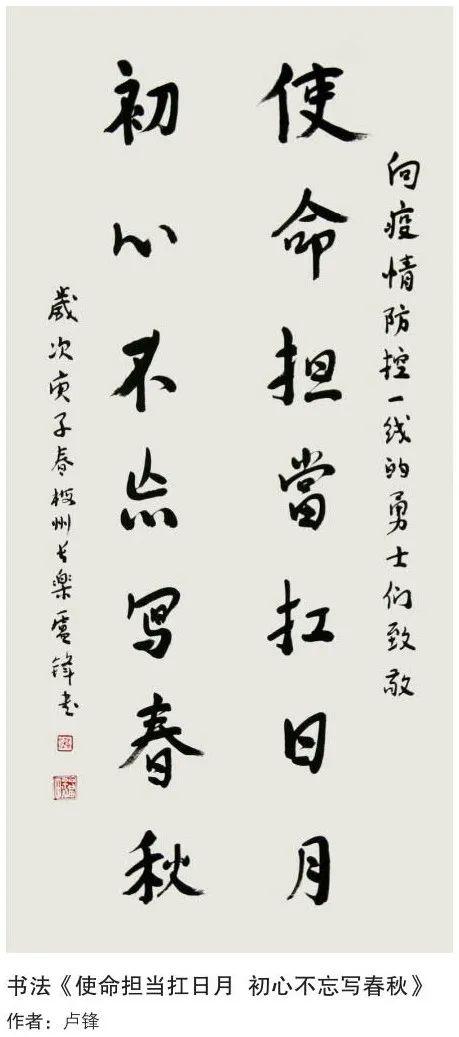 向疫情防控一线的勇士们致敬
使命担當扛日月
初心不忘写春秋
歲次庚子春梅州长樂盧锋书
书法《使命担当扛日月 初心不忘写春秋》
作者：卢锋